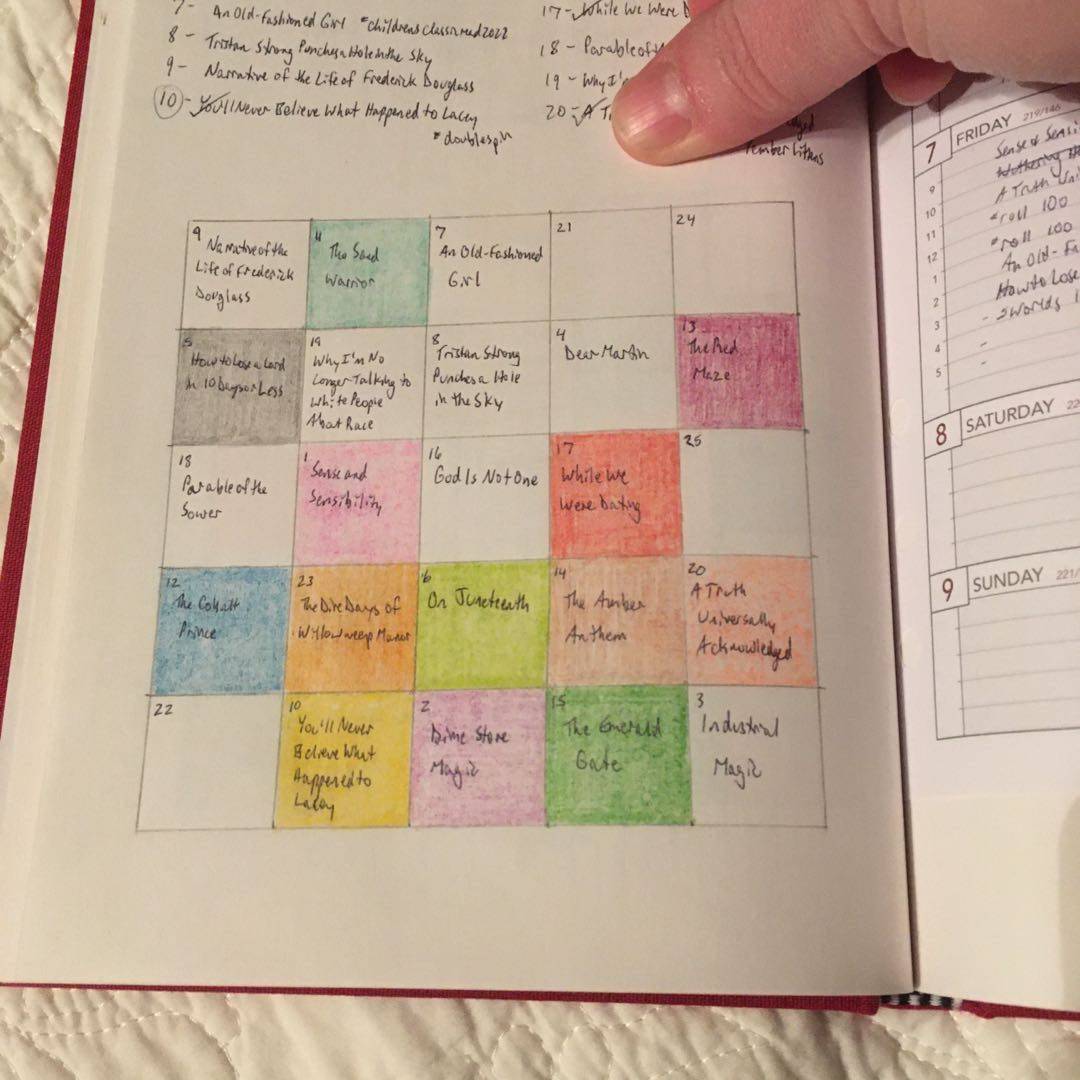 7- An Old-Fashioned Girl #childrensclassicread2022
8 - Tristan Strong Punches a Hole in the Sky
9- Narrative of the Life of Frederick Douglass
10 - You'll Never Believe What Happened to Lacey
#doublespin
17 - While We Were D
18 - Parable of t
19 - Why I'm
20 - A T
9 Narrative of the
Life of Frederick
Douglass
11
The Sand
Warrior
7
An Old-Fashioned
Girl
21
24
5
How to Lose a Lord
in 10 Days or Less
19
Why I'm No
Longer Talking to
White People
About Race
8
Tristan Strong
Punches a Hole
in the Sky
4
Dear Martin
13
The Red
Maze
18
Parable of the
Sower
1
Sense and
Sensibility
16
God Is Not One
17
While We
Were Dating
25
12
The Cobalt
Prince
23
The Dire Days of
Willowweep Manor
6
On Juneteenth
14
The Amber
Anthem
20
A Truth
Universally
Acknowledged
22
10
You'll Never
Believe What
Happened to
Lacey
2
Dime Store
Magic
15
The Emerald
Gate
3
Industrial
Magic
7 FRIDAY 219/146
Sense & Sensi
A Truth Uni
*roll 100
*roll 100
An Old-Fa
How to Lose
-2 Worlds
9
10
11
12
1
2
3
4
5
8 SATURDAY 22
9 SUNDAY 221/